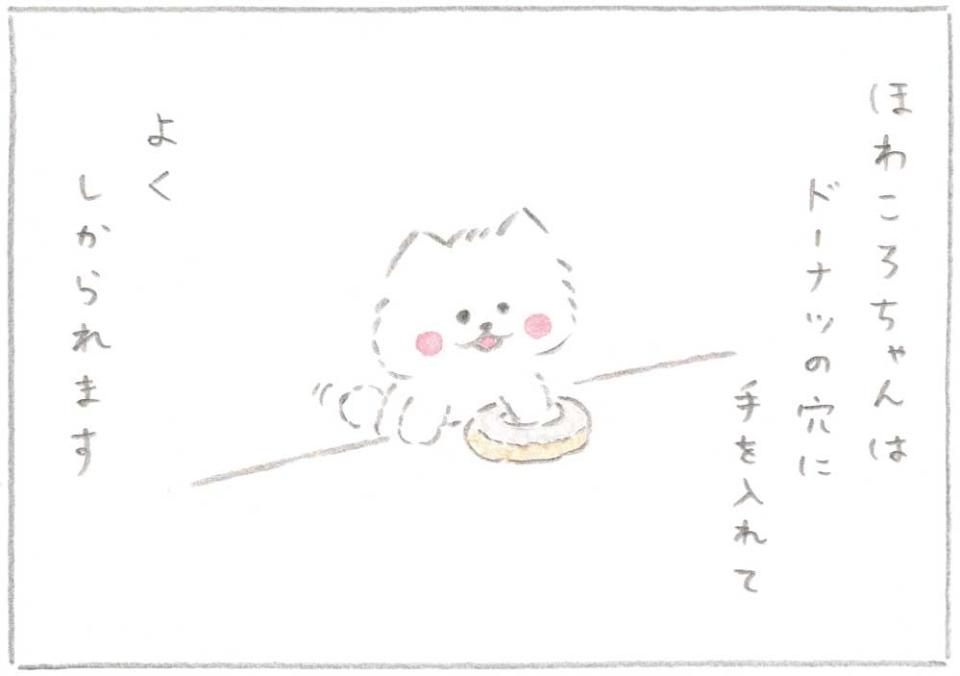 ほわころちゃんは
ドーナツの穴に
手を入れて
よく
しかられます